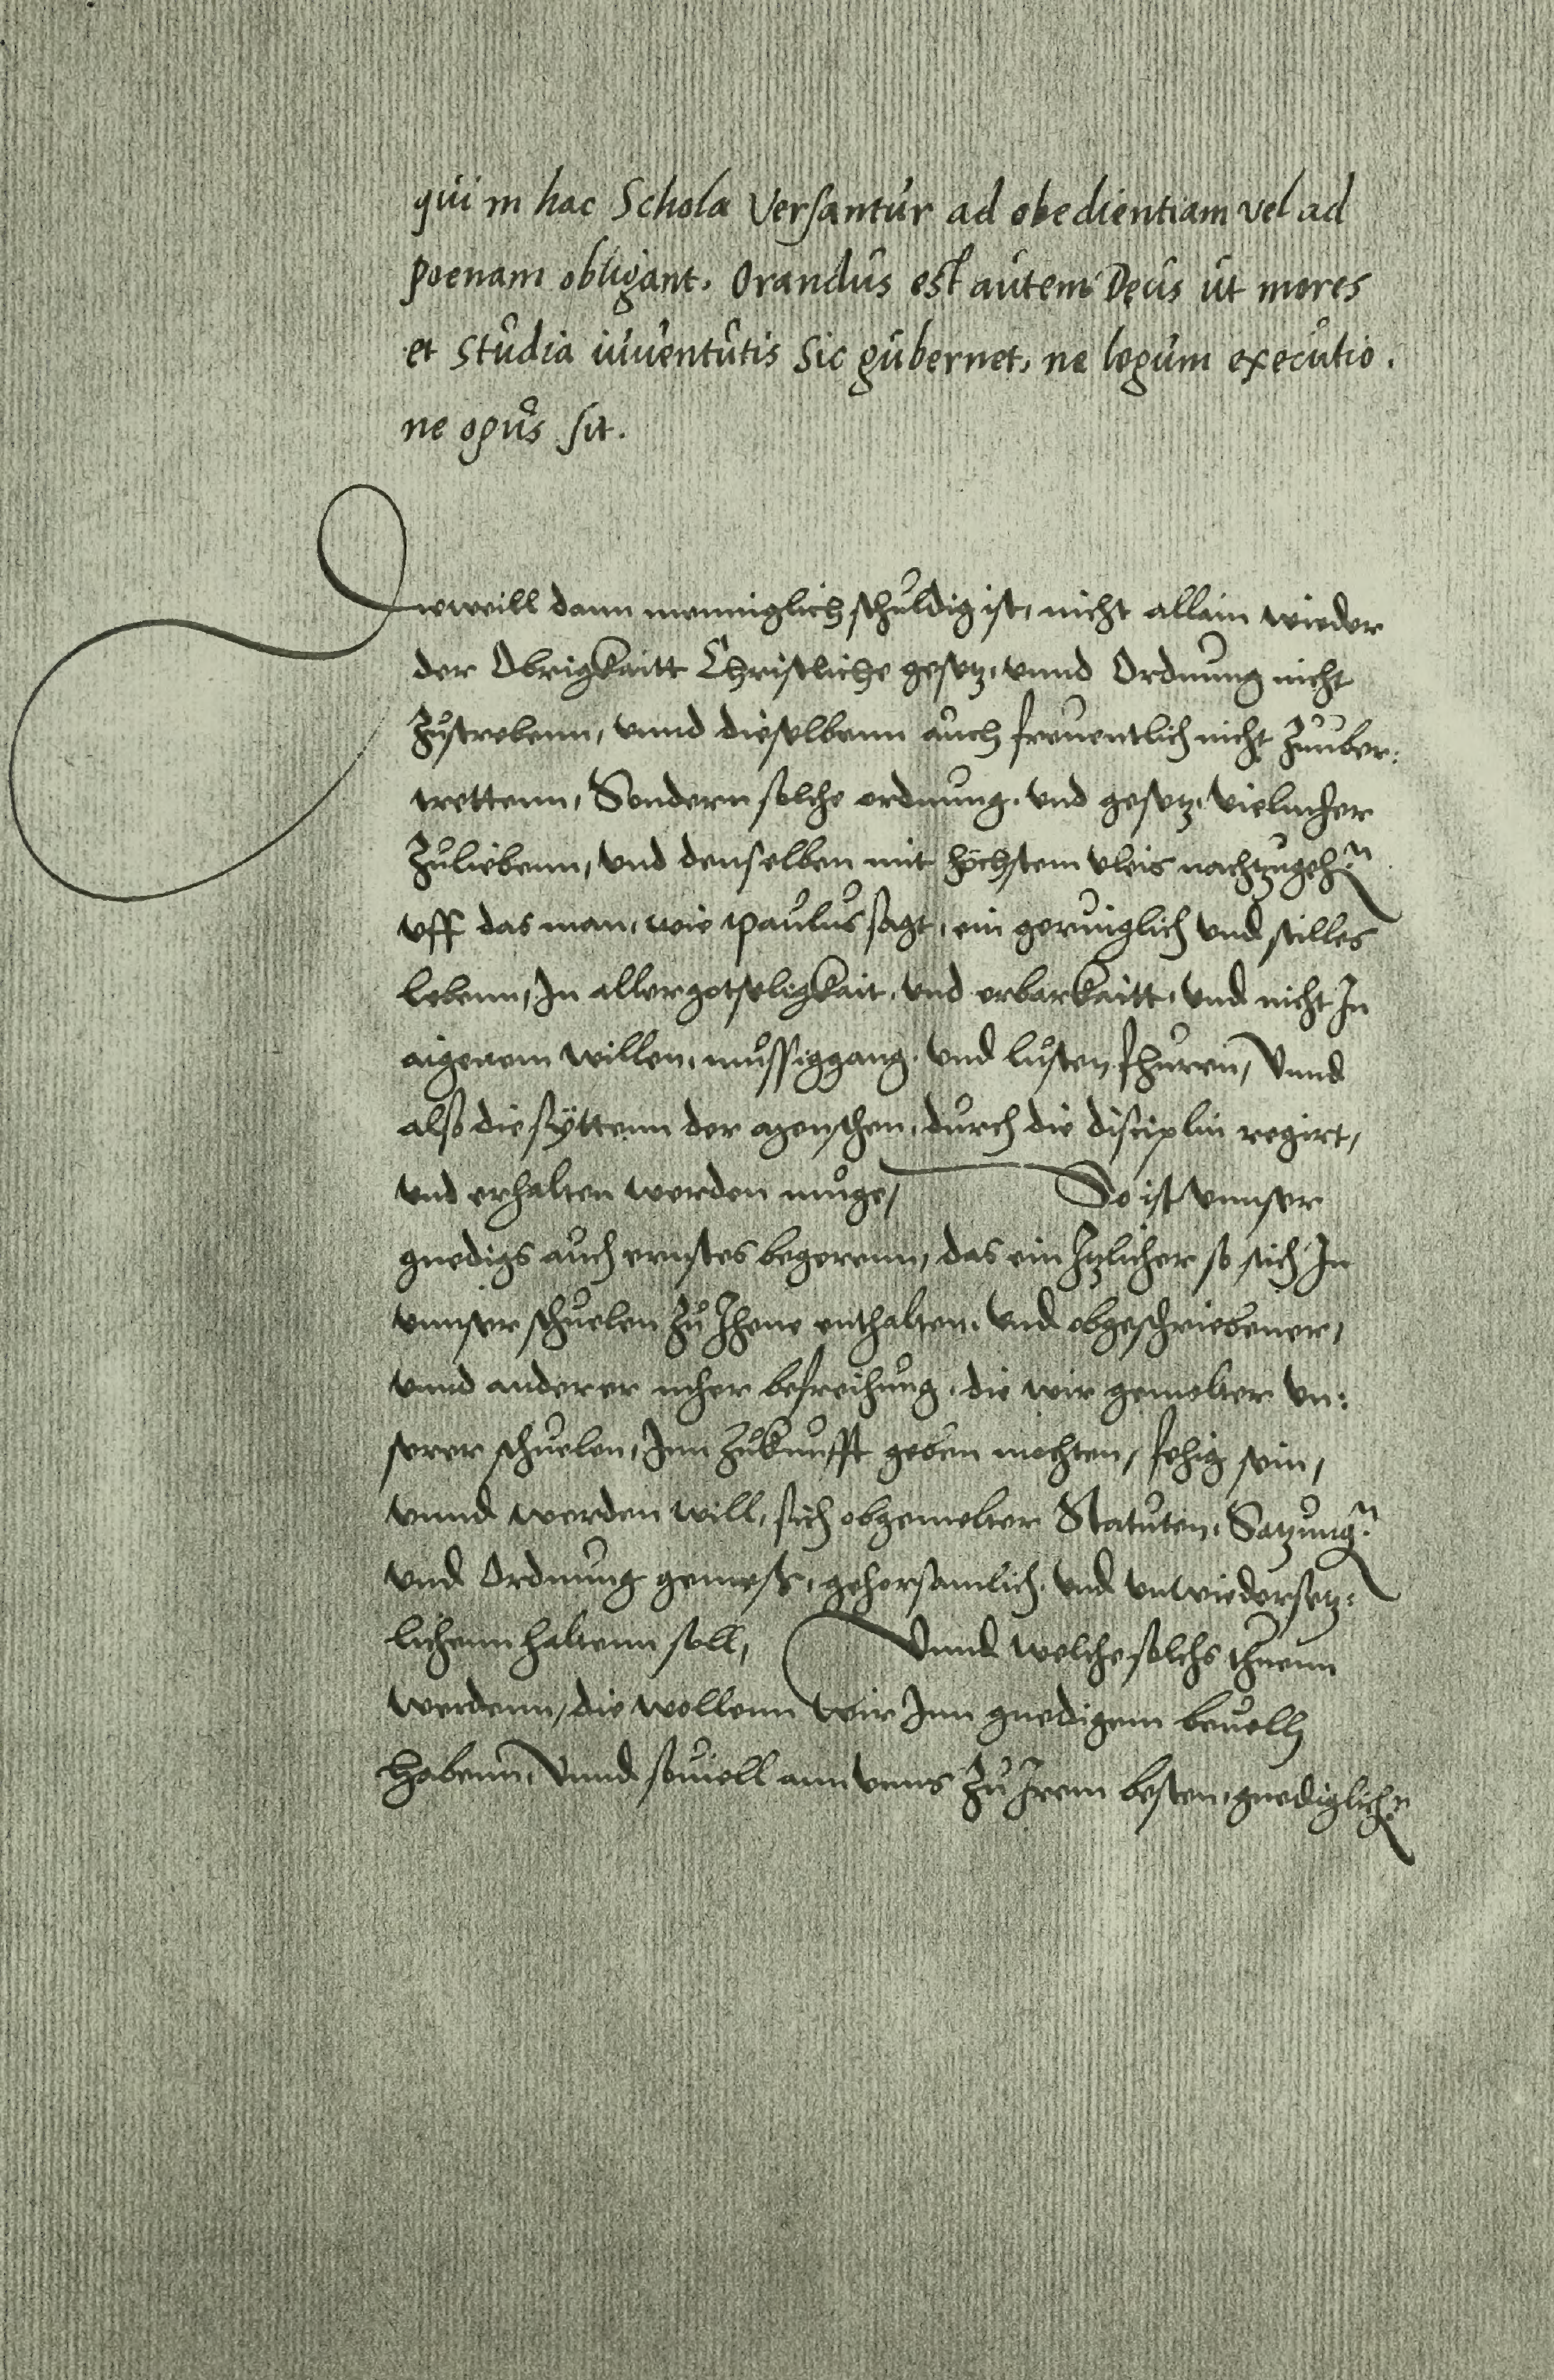 qui in hac Schola Versantur ad obedientiam vel ad
poenam obligant. Orandus est autem Deus ut mores
et Studia iuuentutis Sic gubernet, ne legum executio.
ne opus sit.
Dieweill dann menniglich schuldig ist, nicht allain wieder
der Obrigkaitt Christliche gesetz, vnnd Ordnung nicht
Zustrebenn, vnnd dieselbenn auch freuentlich nicht Zuuber:
trettenn, Sondern solche ordnung, vnd gesetz, vielmeher
Zuliebenn, vnd denselben mit höchstem vleis nachtzugehn
vff das man, wie paulus sagt, ein geruiglich vnd stilles
lebenn, In aller gotseligkait, vnd erbarkaitt, vnd nicht In
aigenem willen, mussiggang, vnd lusten fhuren, Vnnd
also die syttenn der menschen, durch die disciplin regirt,
vnd erhalten werden muge, So ist vnnser
gnedigs auch ernstes begerenn, das ein Itzlicher so sich In
vnnser schuelen zu Jhene enthalten, vnd obgeschriebener,
vnnd anderer meher befreihung, die wir gemelter vn:
serer schuelen, Inn Zukunfft geben mochten, fehig sein,
vnnd werden will, sich obgemelter Statuten, Satzungen
vnd Ordnung gemeß, gehorsamlich, vnd vnwiedersetz:
lichenn haltenn soll, Vnnd welche solchs thuenn
werdenn, die wollenn wir Inn gnedigem beuelh
habenn, Vnnd souiell ann vnns zu Irem besten, gnediglichen